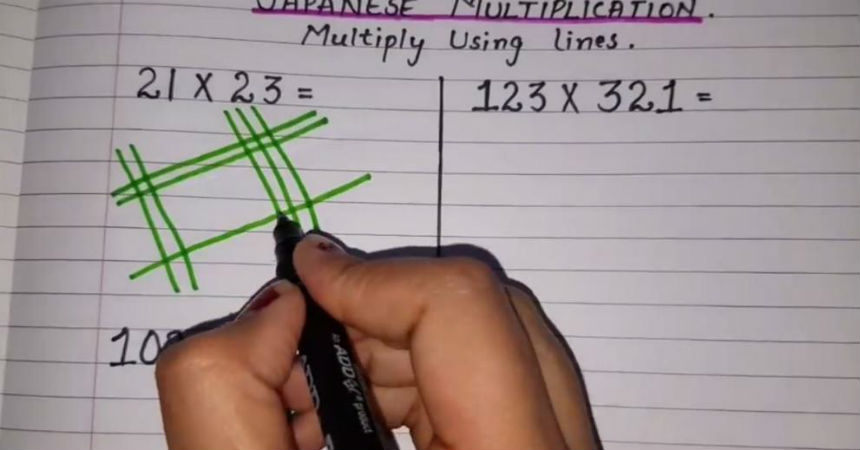 JAPANESE MULTIPLICATION.
Multiply Using lines.
21 X 23 =
123 X 321 =